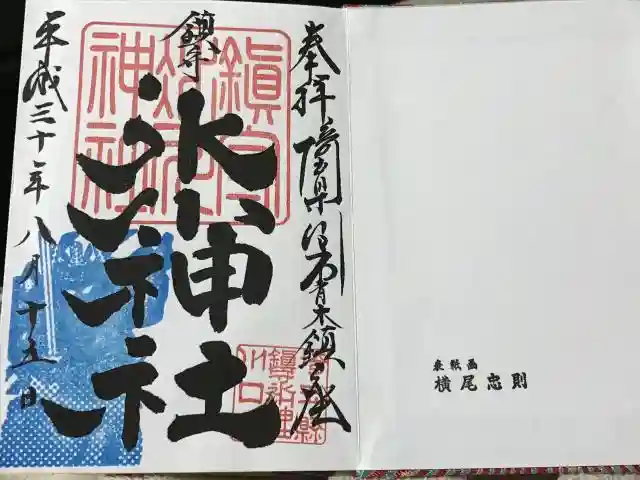 奉拝 埼玉県川口市青木鎮座
鎮守
氷川神社
平成三十年八月十五日
鎮守氷川神社
表紙画
横尾忠則